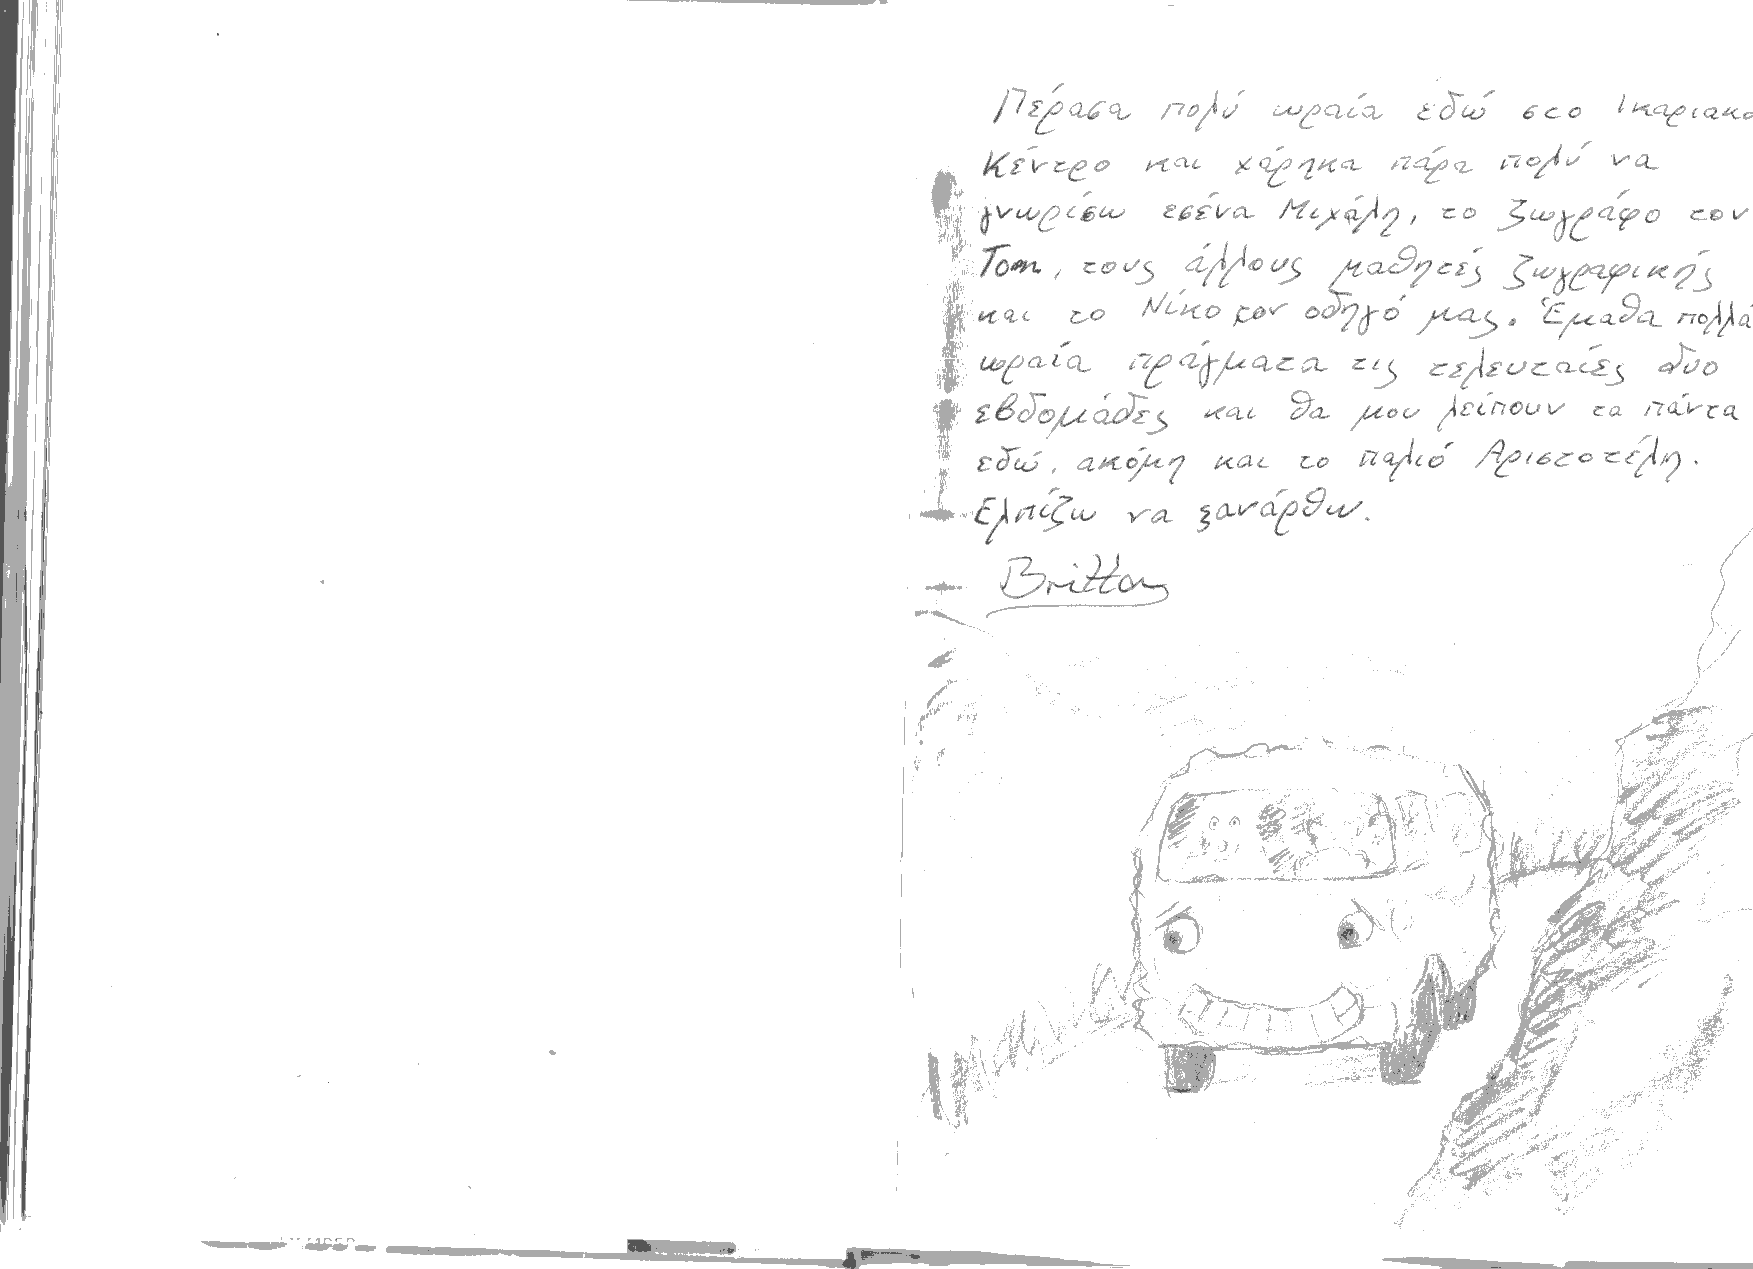 Πέρασα πολύ ωραία εδώ στο Ικαριακό
Κέντρο και χάρηκα πάρα πολύ να
γνωρίσω εσένα Μιχάλη, το ζωγράφο τον
Tom, τους άλλους μαθητές ζωγραφικής
και το Νίκο τον οδηγό μας. Έμαθα πολλά
ωραία πράγματα τις τελευταίες δύο
εβδομάδες και θα μου λείπουν τα πάντα
εδώ, ακόμη και το παλιό Αριστοτέλη.
Ελπίζω να ξανάρθω.
Britton